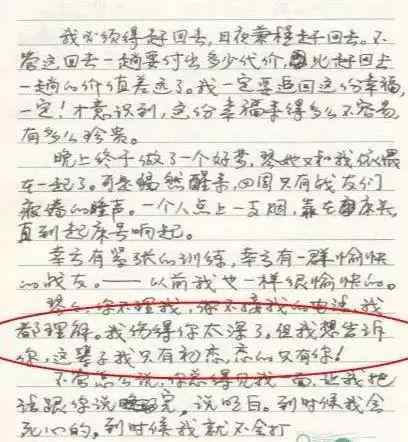 我必须得赶回去,日夜兼程赶不回去。不
管这回去一趟要付出多少代价,比起回去
一趟的价值差远了。我一定要追回这份幸福,
一定!才意识到,这份幸福来得多么不容易,
有多么珍贵。
晚上终于做了一个好梦,琴她又和我依偎
在一起了。可是惕然醒来,四周只有战友们
疲倦的鼾声。一个人点上一支烟,靠在床头,
直到起床号响起。
幸亏有紧张的训练,幸亏有一群愉快
的战友。——以前我也一样很愉快的。
你不理我,你不接我的电话,我
都理解。我伤得你太深了。但我想告诉
你,这辈子我只有初恋,恋的只有你!
不管怎么说,你总得见我一面,让我把
话跟你说完,说明白。到时候我会
死心的,到时候我就不会打